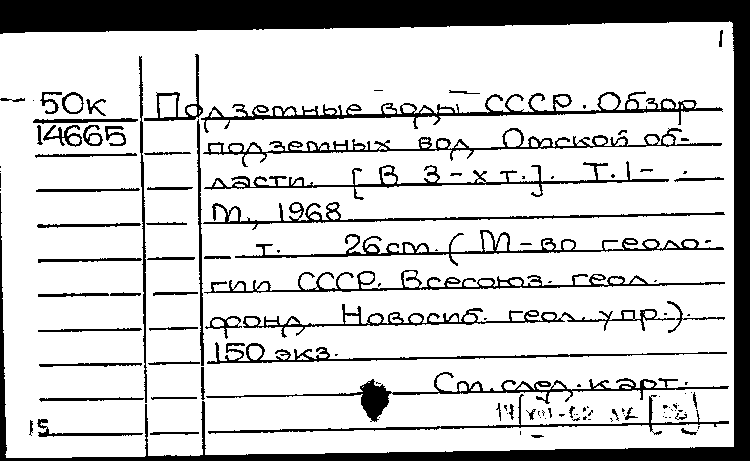 1
50к Подземные воды СССР. Обзор
14665 подземных вод Омской об-
ласти. [В 3-х т.]. Т.1-
М., 1968
т. 26см. (М-во геоло-
гии СССР. Всесоюз. геол.
фонд. Новосиб. геол. упр.).
150 экз.
См. след. карт.
15